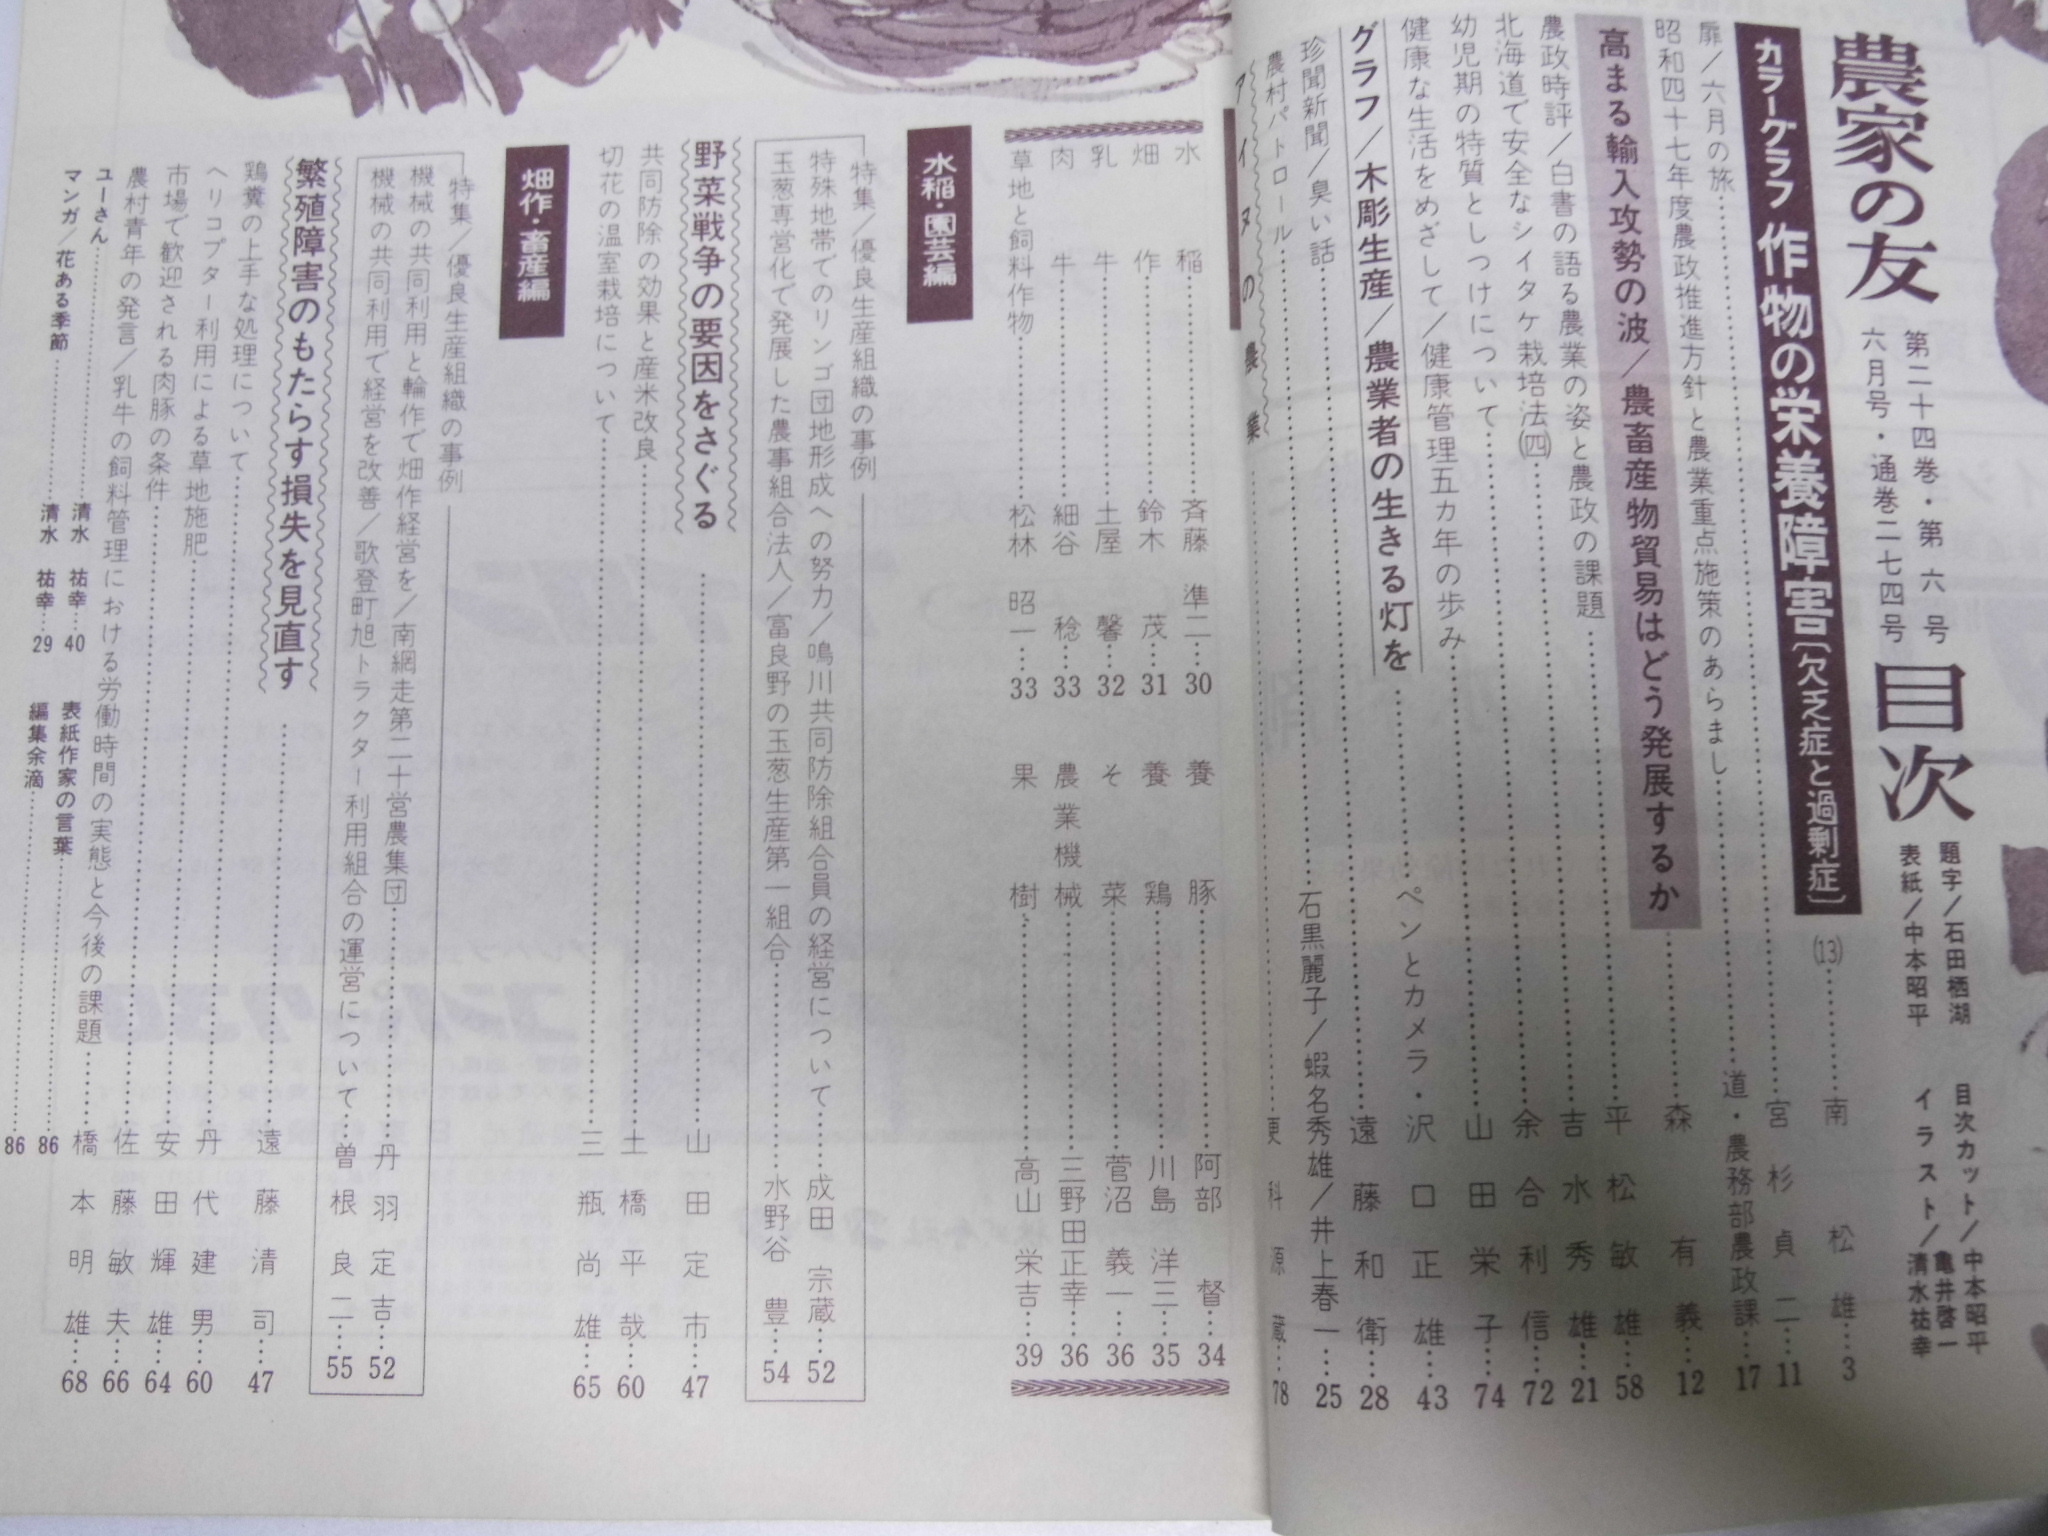 農家の友
第二十四巻・第六号
六月号・通巻二七四号
目次
題字/石田栖湖
表紙/中本昭平
目次カット/中本昭平
亀井啓一
イラスト/清水祐幸
カラーグラフ 作物の栄養障害〔欠乏症と過剰症〕(13)……南松雄…3
扉/六月の旅……宮杉貞二…11
昭和四十七年度農政推進方針と農業重点施策のあらまし……道・農務部農政課…17
高まる輸入攻勢の波/農畜産物貿易はどう発展するか……森有義…12
農政時評/白書の語る農業の姿と農政の課題……平松敏雄…58
北海道で安全なシイタケ栽培法(四)……吉水秀雄…21
幼児期の特質としつけについて……余合利信…72
健康な生活をめざして/健康管理五カ年の歩み……山田栄子…74
グラフ/木彫生産/農業者の生きる灯を……ペンとカメラ・沢口正雄…43
珍聞新聞/臭い話……遠藤和衛…28
農村パトロール……石黒麗子/蝦名秀雄/井上春一…25
アイヌの農業……更科源蔵…78
水稲……斉藤準二…30
畑作……鈴木茂…31
乳牛……土屋馨…32
肉牛……細谷稔…33
草地と飼料作物……松林昭一…33
養豚……阿部督…34
養鶏……川島洋三…35
そ菜……菅沼義一…36
農業機械……三野田正幸…36
果樹……高山栄吉…39
水稲・園芸編
特集/優良生産組織の事例
特殊地帯でのリンゴ団地形成への努力/鳴川共同防除組合員の経営について……成田宗蔵…52
玉葱専営化で発展した農事組合法人/富良野の玉葱生産第一組合……水野谷豊…54
野菜戦争の要因をさぐる……山田定市…47
共同防除の効果と産米改良……土橋平哉…60
切花の温室栽培について……三瓶尚雄…65
畑作・畜産編
特集/優良生産組織の事例
機械の共同利用と輪作で畑作経営を/南網走第二十営農集団……丹羽定吉…52
機械の共同利用で経営を改善/歌登町旭トラクター利用組合の運営について……曽根良二…55
繁殖障害のもたらす損失を見直す……遠藤清司…47
鶏糞の上手な処理について……丹代建男…60
ヘリコプター利用による草地施肥……安田輝雄…64
市場で歓迎される肉豚の条件……佐藤敏夫…66
農村青年の発言/乳牛の飼料管理における労働時間の実態と今後の課題……橋本明雄…68
ユーさん……清水祐幸…40
マンガ/花ある季節……清水祐幸…29
表紙作家の言葉……86
編集余滴……86